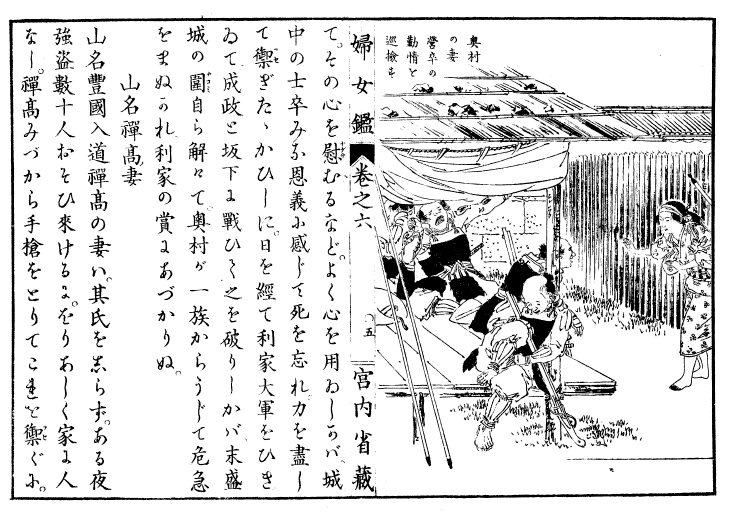 奥村
の妻
營卒の
勤惰を
巡撿す
婦女鑑 卷之六 〇五 宮内省藏
て。その心を慰むるなど。よく心を用ゐしかバ、城
中の士卒みな恩義に感じて死を忘れ力を盡し
て禦ぎたゝかひしに。日を經て利家大軍をひき
ゐて成政と坂下に戰ひて之を破りしかバ末盛
城の圍自ら解けて奥村が一族からうじて危急
をまぬかれ利家の賞にあづかりぬ。
山名禪高妻
山名豐國入道禪高の妻ハ。其氏を志らず。ある夜
強盗數十人おそひ來けるに。をりあしく家に人
なし。禪髙みづから手槍をとりてこれを禦ぐに。